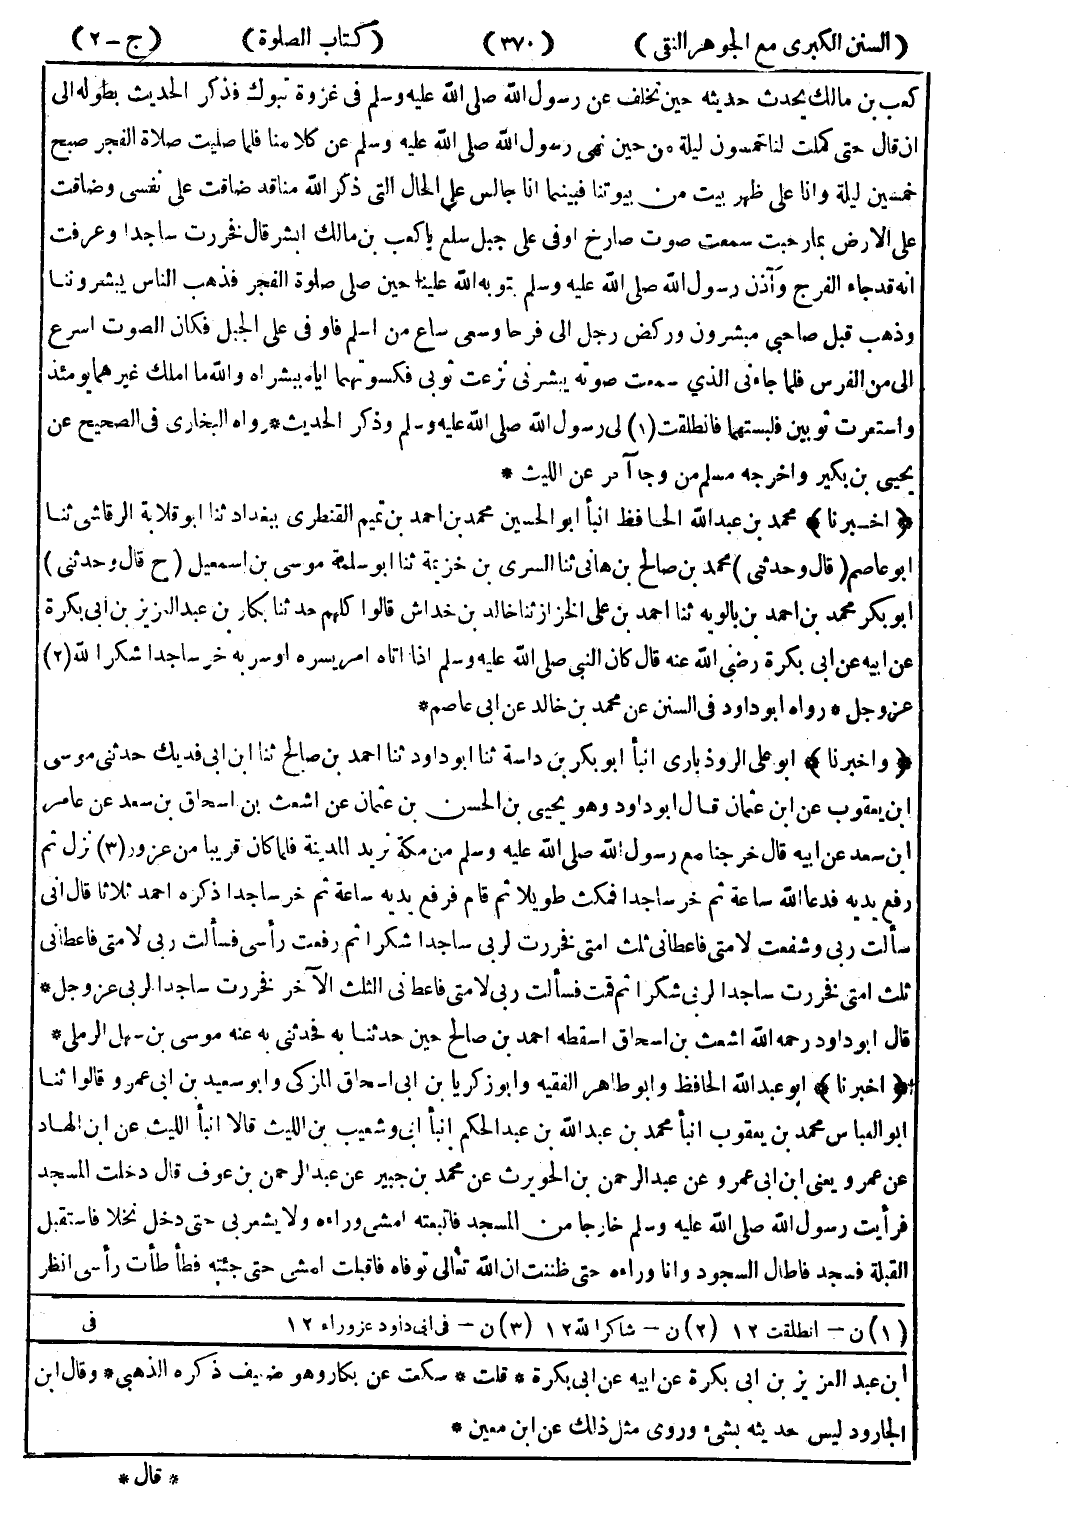 (السنن الكبرى مع الجوهر النقى) (٣٧٠) (كتاب الصلوة) (ج - ٢)
كعب بن مالك يحدث حديثه حين تخلف عن رسول الله صلى الله عليه وسلم فى غزوة تبوك فذكر الحديث بطوله الى
ان قال حتى كملت لنا خمسون ليلة من حين نهى رسول الله صلى الله عليه وسلم عن كلامنا فلما صليت صلاة الفجر صبح
خمسين ليلة وانا على ظهر بيت من بيوتنا فبينما انا جالس على الحال التى ذكر الله منا قد ضاقت على نفسى وضاقت
على الارض بما رحبت سمعت صوت صارخ اوفى على جبل سلع يا كعب بن مالك ابشر قال فخررت ساجدا وعرفت
انه قد جاء الفرج وآذن رسول الله صلى الله عليه وسلم بتوبه الله علينا حين صلى صلوة الفجر فذهب الناس يبشروننا
وذهب قبل صاحبى مبشرون وركض رجل الى فرحا وسعى ساع من اسلم فاوفى على الجبل فكان الصوت اسرع
الى من الفرس فلما جاءنى الذي سمعت صوته يبشرنى نزعت ثوبى فكسوتهما اياه ببشراه والله ما املك غيرهما يومئذ
واستعرت ثوبين فلبستهما فانطلقت (١) لى رسول الله صلى الله عليه وسلم وذكر الحديث * رواه البخارى فى الصحيح عن
يحيى بن بكير واخرجه مسلم من وجه آخر عن الليث *
﴿ اخبرنا ﴾ محمد بن عبد الله الحافظ انبأ ابو الحسين محمد بن احمد بن تميم القنطرى ببغداد ثنا ابو قلابة الرقاشى ثنا
ابو عاصم (قال وحدثنى) محمد بن صالح بن هانى ثنا السرى بن خزيمة ثنا ابو سلمة موسى بن اسمعيل (ح قال وحدثنى)
ابو بكر محمد بن احمد بن بالويه ثنا احمد بن على الخزاز ثنا خالد بن خداش قالوا كلهم حدثنا بكار بن عبد العزيز بن ابى بكرة
عن ابيه عن ابى بكرة رضى الله عنه قال كان النبى صلى الله عليه وسلم اذا اتاه امر يسره او سر به خر ساجدا شكرا لله (٢)
عزوجل * رواه ابو داود فى السنن عن محمد بن خالد عن ابى عاصم *
﴿ واخبرنا ﴾ ابو على الروذبارى انبأ ابو بكر بن داسة ثنا ابو داود ثنا احمد بن صالح ثنا ابن ابى فديك حدثنى موسى
ابن يعقوب عن ابن عثمان قال ابو داود وهو يحيى بن الحسن بن عثمان عن اشعث بن اسحاق بن سعد عن عامر
ابن سعد عن ابيه قال خرجنا مع رسول الله صلى الله عليه وسلم من مكة نريد المدينة فلما كان قريبا من عزور (٣) نزل ثم
رفع يديه فدعا الله ساعة ثم خر ساجدا فمكث طويلا ثم قام فرفع يديه ساعة ثم خر ساجدا ذكره احمد ثلاثا قال انى
سألت ربى وشفعت لامتى فاعطانى ثلث امتى فخررت لربى ساجدا شكرا ثم رفعت رأسى فسألت ربى لامتى فاعطانى
ثلث امتى فخررت ساجدا لربى شكرا ثم قمت فسألت ربى لامتى فاعطانى الثلث الآخر فخررت ساجدا لربى عزوجل *
قال ابو داود رحمه الله اشعث بن اسحاق اسقطه احمد بن صالح حين حدثنا به فحدثنى به عنه موسى بن سهل الرملى *
﴿ اخبرنا ﴾ ابو عبد الله الحافظ وابو طاهر الفقيه وابو زكريا بن ابى اسحاق المزكى وابو سعيد بن ابى عمرو قالوا ثنا
ابو العباس محمد بن يعقوب انبأ محمد بن عبد الله بن عبد الحكم انبأ ابى وشعيب بن الليث قالا انبأ الليث عن ابن الهاد
عن عمرو يعنى ابن ابى عمرو عن عبد الرحمن بن الحويرث عن محمد بن جبير عن عبد الرحمن بن عوف قال دخلت المسجد
فرأيت رسول الله صلى الله عليه وسلم خارجا من المسجد فاتبعته امشى وراءه ولا يشعر بى حتى دخل نخلا فاستقبل
القبلة فسجد فاطال السجود وانا وراءه حتى ظننت ان الله تعالى توفاه فاقبلت امشى حتى جئته فطأطأت رأسى انظر
(١) ن - انطلقت ١٢ (٢) ن - شاكرا لله ١٢ (٣) ن - فى ابى داود عزوراء ١٢ فى
ابن عبد العزيز بن ابى بكرة عن ابيه عن ابى بكرة * قلت * سكت عن بكار وهو ضعيف ذكره الذهبى * وقال ابن
الجارود ليس حديثه بشىء وروى مثل ذلك عن ابن معين *
* قال *